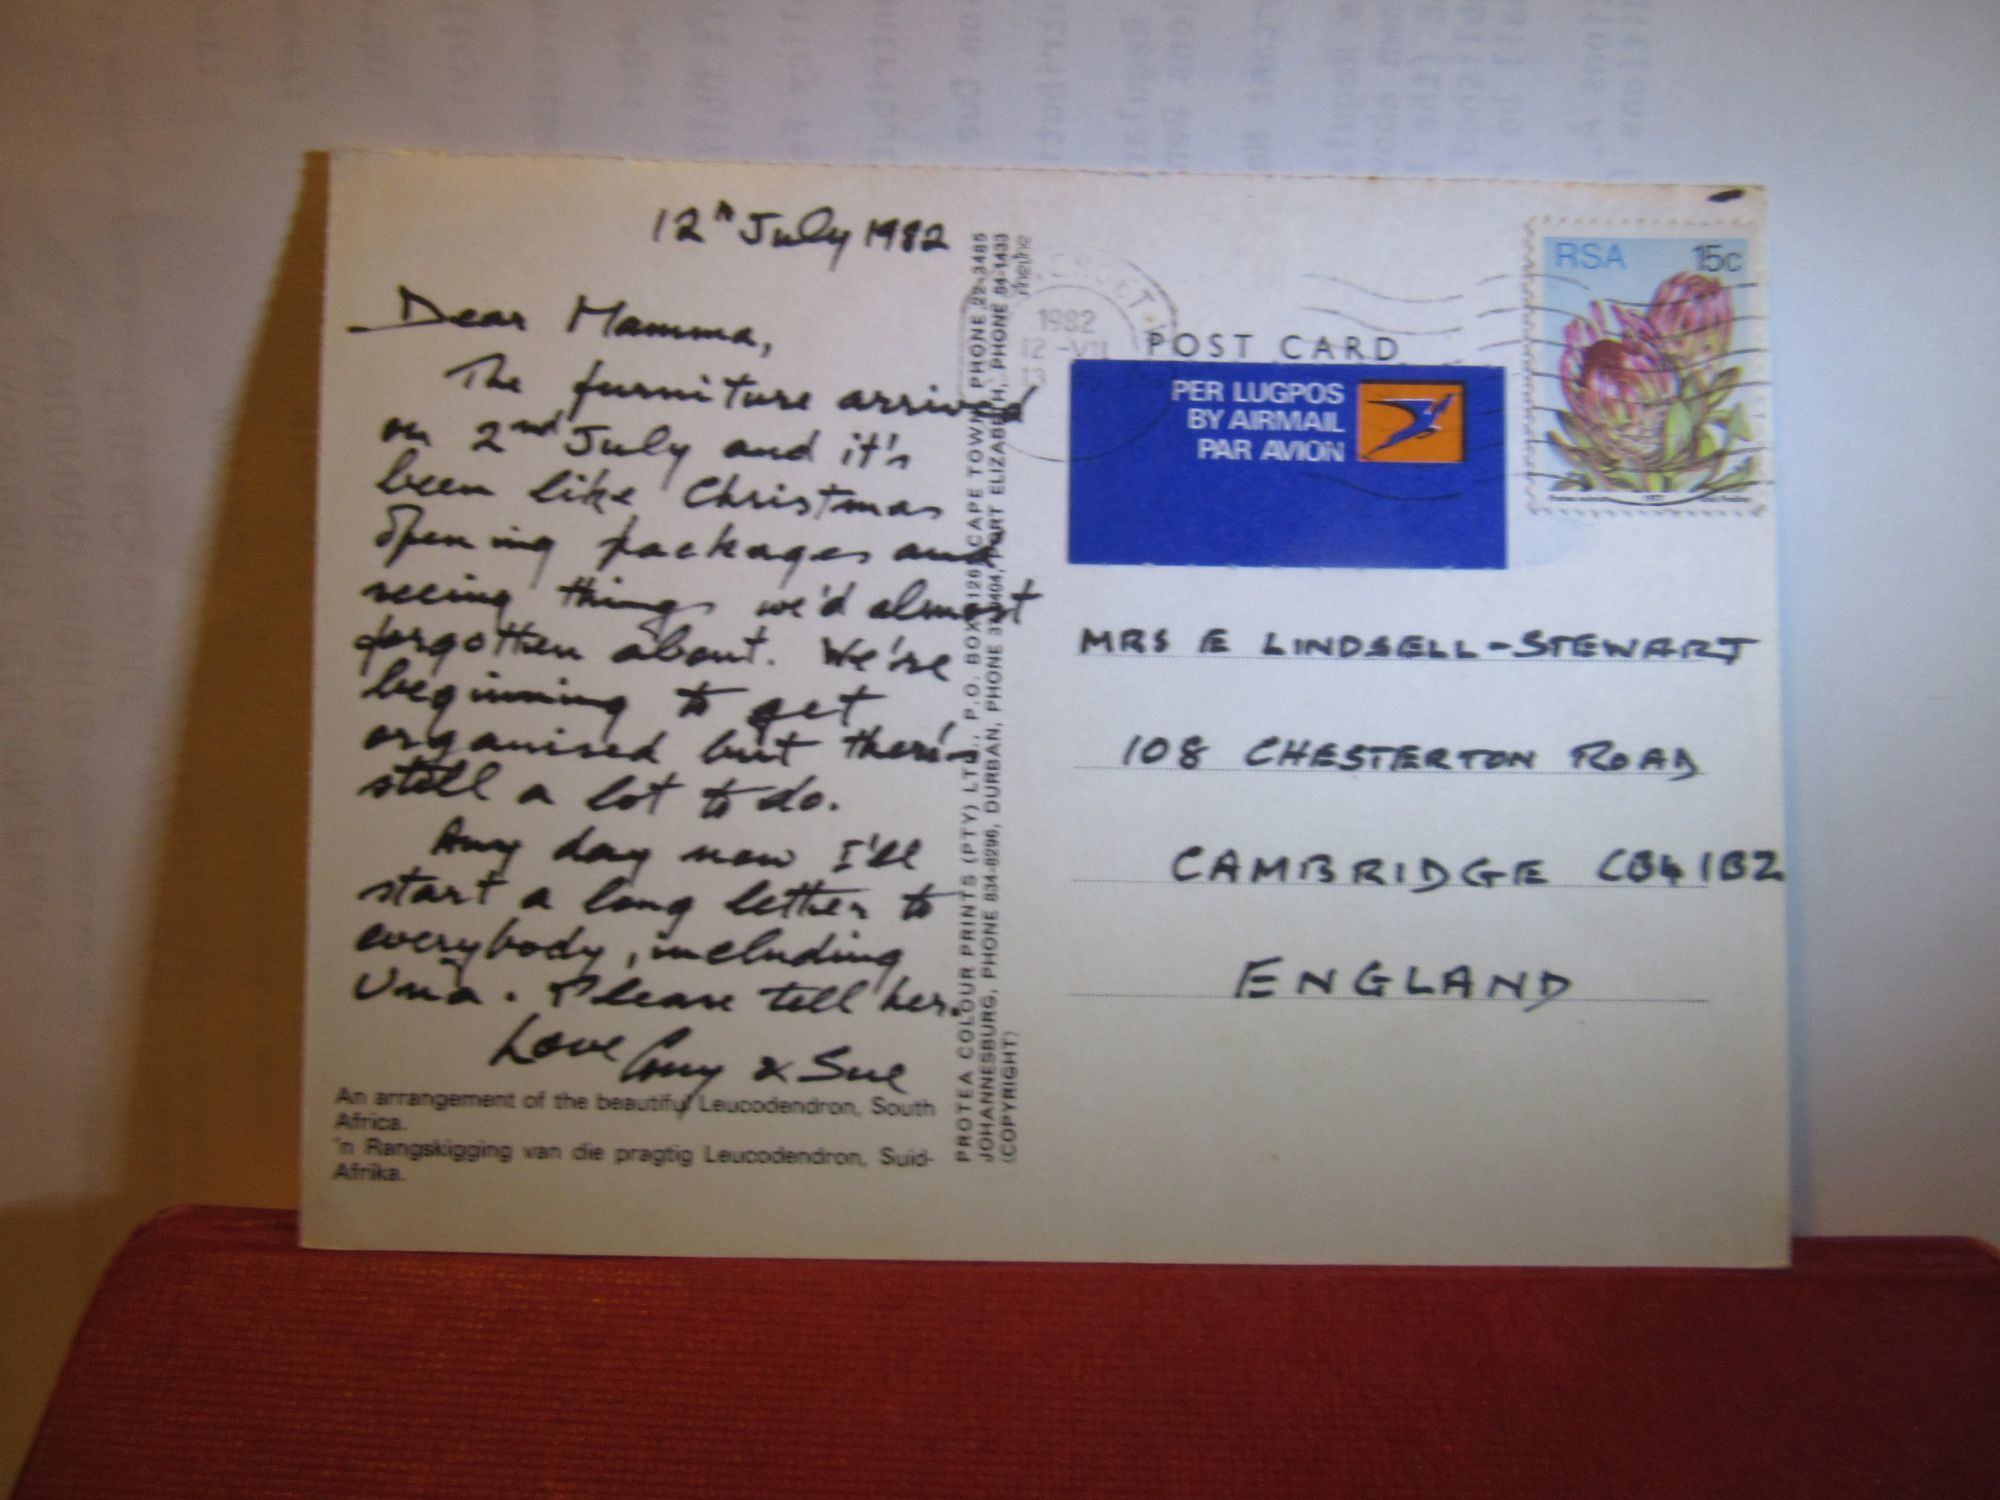 12th July 1982
Dear Mamma,
The furniture arrived
on 2nd July and it's
been like Christmas
opening packages and
seeing things we'd almost
forgotten about. We're
beginning to get
organised but there's
still a lot to do.
Any day now I'll
start a long letter to
everybody, including
Una. Please tell her.
Love & Sue
An arrangement of the beautiful Leucodendron, South
Africa.
'n Rangskigging van die pragtig Leucodendron, Suid-
Afrika.
PROTEA COLOUR PRINTS (PTY) LTD., P.O. BOX CAPE TOWN, PHONE 22-3485
JOHANNESBURG, PHONE 834-8296, DURBAN, PHONE PORT ELIZABETH, PHONE 54-1433
(COPYRIGHT)
1982
12 -VII
POST CARD
PER LUGPOS
BY AIRMAIL
PAR AVION
RSA 15c
MRS E LINDSELL-STEWART
108 CHESTERTON ROAD
CAMBRIDGE CB4 1BZ
ENGLAND